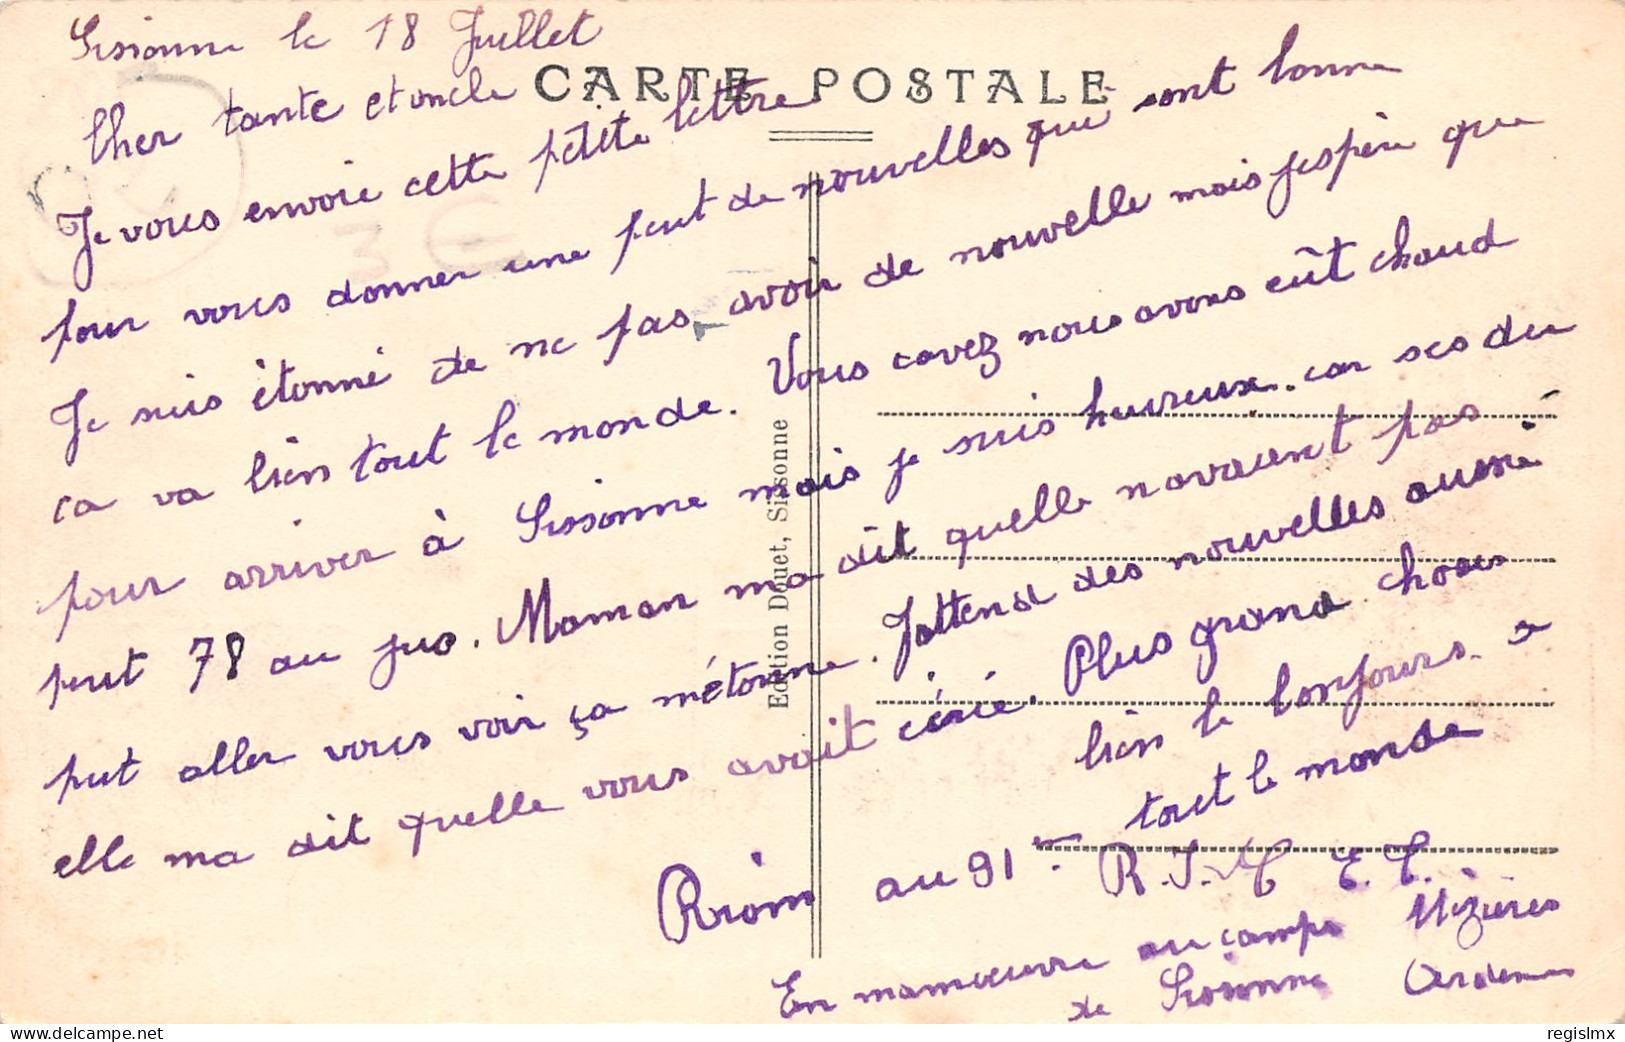 Sissonne le 18 Juillet
CARTE POSTALE
Cher tante et oncle
Je vous envoie cette petite lettre
pour vous donner une peut de nouvelles qui sont bonne
Je suis étonné de ne pas avoir de nouvelle mais jespère que
ca va bien tout le monde. Vous savez nous avons eût chaud
pour arriver à Sissonne mais je suis heureux. car ses du
peut 78 au jus. Maman ma dit quelle navaient pas
put aller vous voir ça métonne. Jattend des nouvelles aussi
elle ma dit quelle vous avait écrié. Plus grand choses
bien le bonjours a
tout le monde
au 91e R.I. E.T.
En manœuvre au camps Mézières
de Sissonne Ardennes
Edition Douet, Sissonne
3 €
regislmx